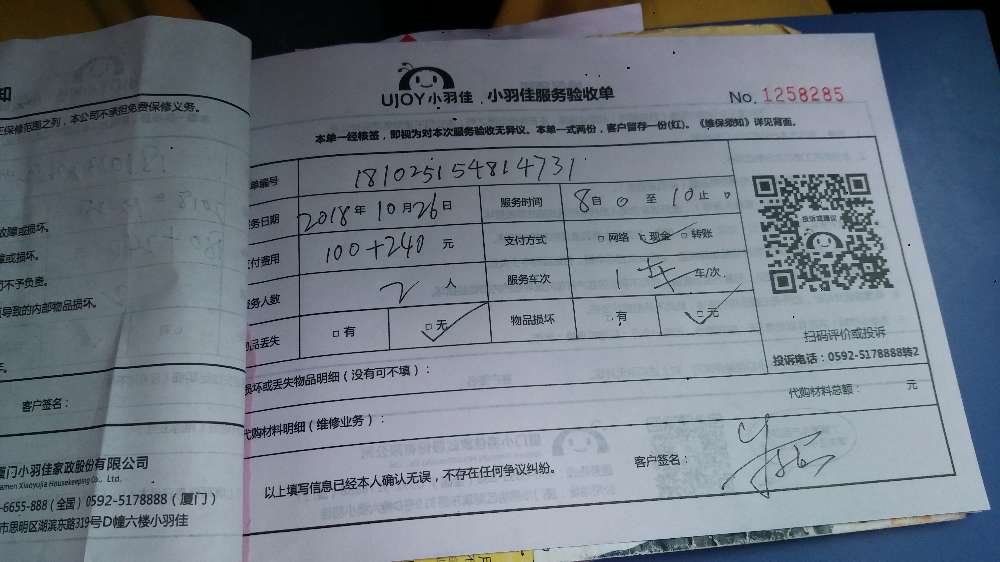 知
保修范围之列，本公司不承担免费保修义务。
故障或损坏。
障或损坏。
司不予负责。
导致的内部物品损坏。
客户签名：
厦门小羽佳家政股份有限公司
amen Xiaoyujia Housekeeping Co., Ltd.
-6655-888（全国）0592-5178888（厦门）
市思明区湖滨东路319号D幢六楼小羽佳
UJOY小羽佳 小羽佳服务验收单
No. 1258285
本单一经核签，即视为对本次服务验收无异议。本单一式两份，客户留存一份(红)。《维保须知》详见背面。
单编号 181025154814731
务日期 2018年10月26日 服务时间 8自0至10止0
付费用 100+240元 支付方式 □网络 □现金 □转账
务人数 2人 服务车次 1车 车/次
品丢失 □有 □无 物品损坏 □有 □无
投诉或建议
扫码评价或投诉
投诉电话：0592-5178888转2
损坏或丢失物品明细（没有可不填）：
代购材料总额： 元
代购材料明细（维修业务）：
以上填写信息已经本人确认无误，不存在任何争议纠纷。
客户签名：